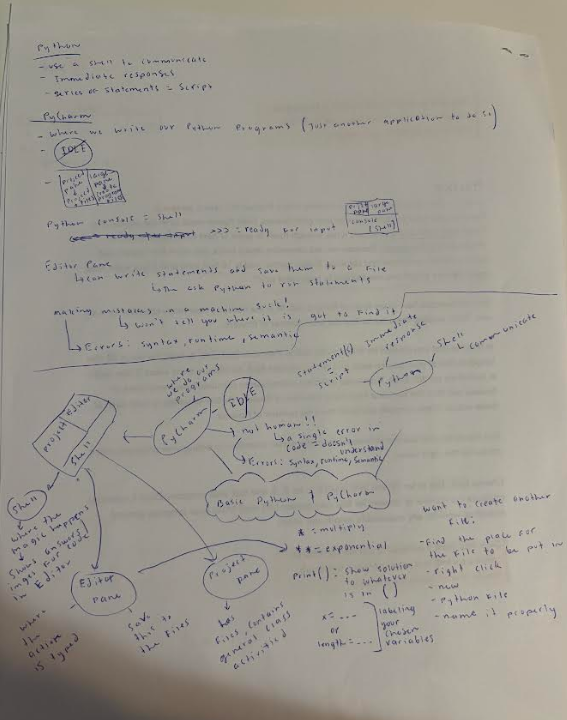 Python
- use a shell to communicate
- Immediate responses
- series of statements = script
PyCharm
- where we write our Python programs (just another application to do so)
- IDLE
- Project pane
Python console = shell
>>> = ready for input
console
(shell)
Editor Pane
↳ can write statements and save them to a file
↳ the ask Python to run statements
making mistakes in a machine suck!
↳ won't tell you where it is, got to find it
↳ Errors: syntax, runtime, semantic
statement(s)
=
script
immediate
response
shell
↳ communicate
Python
where
we do our
programs
PyCharm
IDLE
not human!!
↳ a single error in
code = doesn't
understand
↳ Errors: syntax, runtime, semantic
Project
Editor
Shell
Basic Python & PyCharm
Shell
where the
magic happens
↳ shows answers/
for code
in Editor
Editor
Pane
where
the
action
is typed
save
this to
the files
Project
pane
has
files, contains
general class
activities
* = multiply
** = exponential
print(): show solution
to whatever
is in ()
x = ...
or
length = ...
labeling
your
chosen
variables
want to create another
file:
- find the place for
the file to be put in
- right click
- new
- Python file
- name it properly